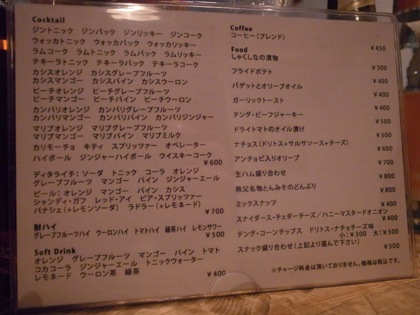 Cocktail
ジントニック ジンバック ジンリッキー ジンコーク
ウォッカトニック ウォッカバック ウォッカリッキー
ラムコーク ラムトニック ラムバック ラムリッキー
テキーラトニック テキーラバック テキーラコーク
カシスオレンジ カシスグレープフルーツ
カシスマンゴー カシスパイン カシスウーロン
ピーチオレンジ ピーチグレープフルーツ
ピーチマンゴー ピーチパイン ピーチウーロン
カンパリオレンジ カンパリグレープフルーツ
カンパリマンゴー カンパリパイン カンパリジンジャー
マリブオレンジ マリブグレープフルーツ
マリブマンゴー マリブパイン マリブミルク
カリモーチョ キティ スプリッツァー オペレーター
ハイボール ジンジャーハイボール ウイスキーコーク
¥600
ディタライチ:ソーダ トニック コーラ オレンジ
グレープフルーツ マンゴー パイン ジンジャーエール
ビール:オレンジ マンゴー パイン カシス
シャンディ・ガフ レッド・アイ ビア・スプリッツァー
パナシェ(+レモンソーダ) ラドラー(+レモネード)
¥700
酎ハイ
グレープフルーツハイ ウーロンハイ トマトハイ 緑茶ハイ レモンサワー
¥500
Soft Drink
オレンジ グレープフルーツ マンゴー パイン トマト
コカコーラ ジンジャーエール トニックウォーター
レモネード ウーロン茶 緑茶
¥400
Coffee
コーヒー(ブレンド) ¥450
Food
しゃくしなの漬物 ¥300
フライドポテト ¥400
バゲットとオリーブオイル ¥400
ガーリックトースト ¥400
テング・ビーフジャーキー ¥500
ドライトマトのオイル漬け ¥500
ナチョス(ドリトス+サルサソース+チーズ) ¥600
アンチョビ入りオリーブ ¥700
生ハム盛り合わせ ¥800
秩父名物とんみそのどんぶり ¥800
ミックスナッツ ¥400
スナイダース・チェダーチーズ/ハニーマスタードオニオン
¥400
テング・コーンチップス ドリトス・ナチョチーズ味
小:¥300 大:¥500
スナック盛り合わせ(上記より選んで下さい)
¥500
※チャージ料金は頂いておりません。価格は税込です。